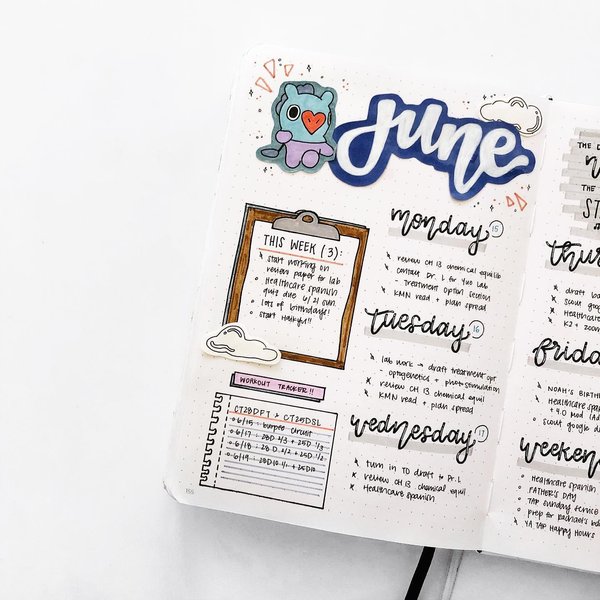 june
THIS WEEK (3):
start working on
review paper for lab
Healthcare spanish
quiz due 6/21 sun.
lots of birthdays!
start Haikyu!!
WORKOUT TRACKER!!
CT28DFT & CT25DSL
6/15: burpee circuit
6/17: 28D 2/3 + 25D 1/3
6/18: 28 D 2/2 + 25D 1/2
6/19: 28D 10 1/1 + 25D10
155
monday 15
review CH 13 chemical equilib
contact Dr. L for 4x0 lab
treatment option section
KMN read + plan spread
tuesday 16
lab work → draft treatment opt
optogenetics + photostimulation
review CH 13 chemical equil
KMN read + plan spread
wednesday 17
turn in TO draft to Dr. L
review CH 13 chemical equil
Healthcare spanish
THE D
THE
ST
thur
draft
scout goog
Healthcare
K2 + zoom
frida
NOAH'S BIRTHD
Healthcare span
+ 4.0 mod
scout google d
weeken
Healthcare spanish
FATHER'S DAY
TAP sunday service
prep for rachael's bd
YA TAP Happy Hours